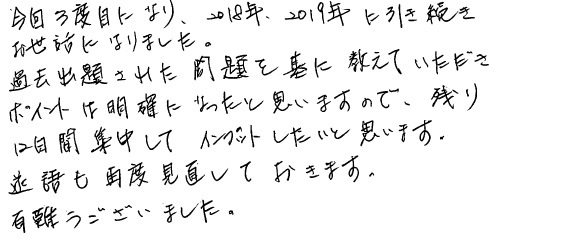 今回3度目になり、2018年、2019年に引き続き
お世話になりました。
過去出題された問題を基に教えていただき
ポイントは明確になったと思いますので、残り
12日間集中してインプットしたいと思います。
逆語も再度見直しておきます。
有難うございました。